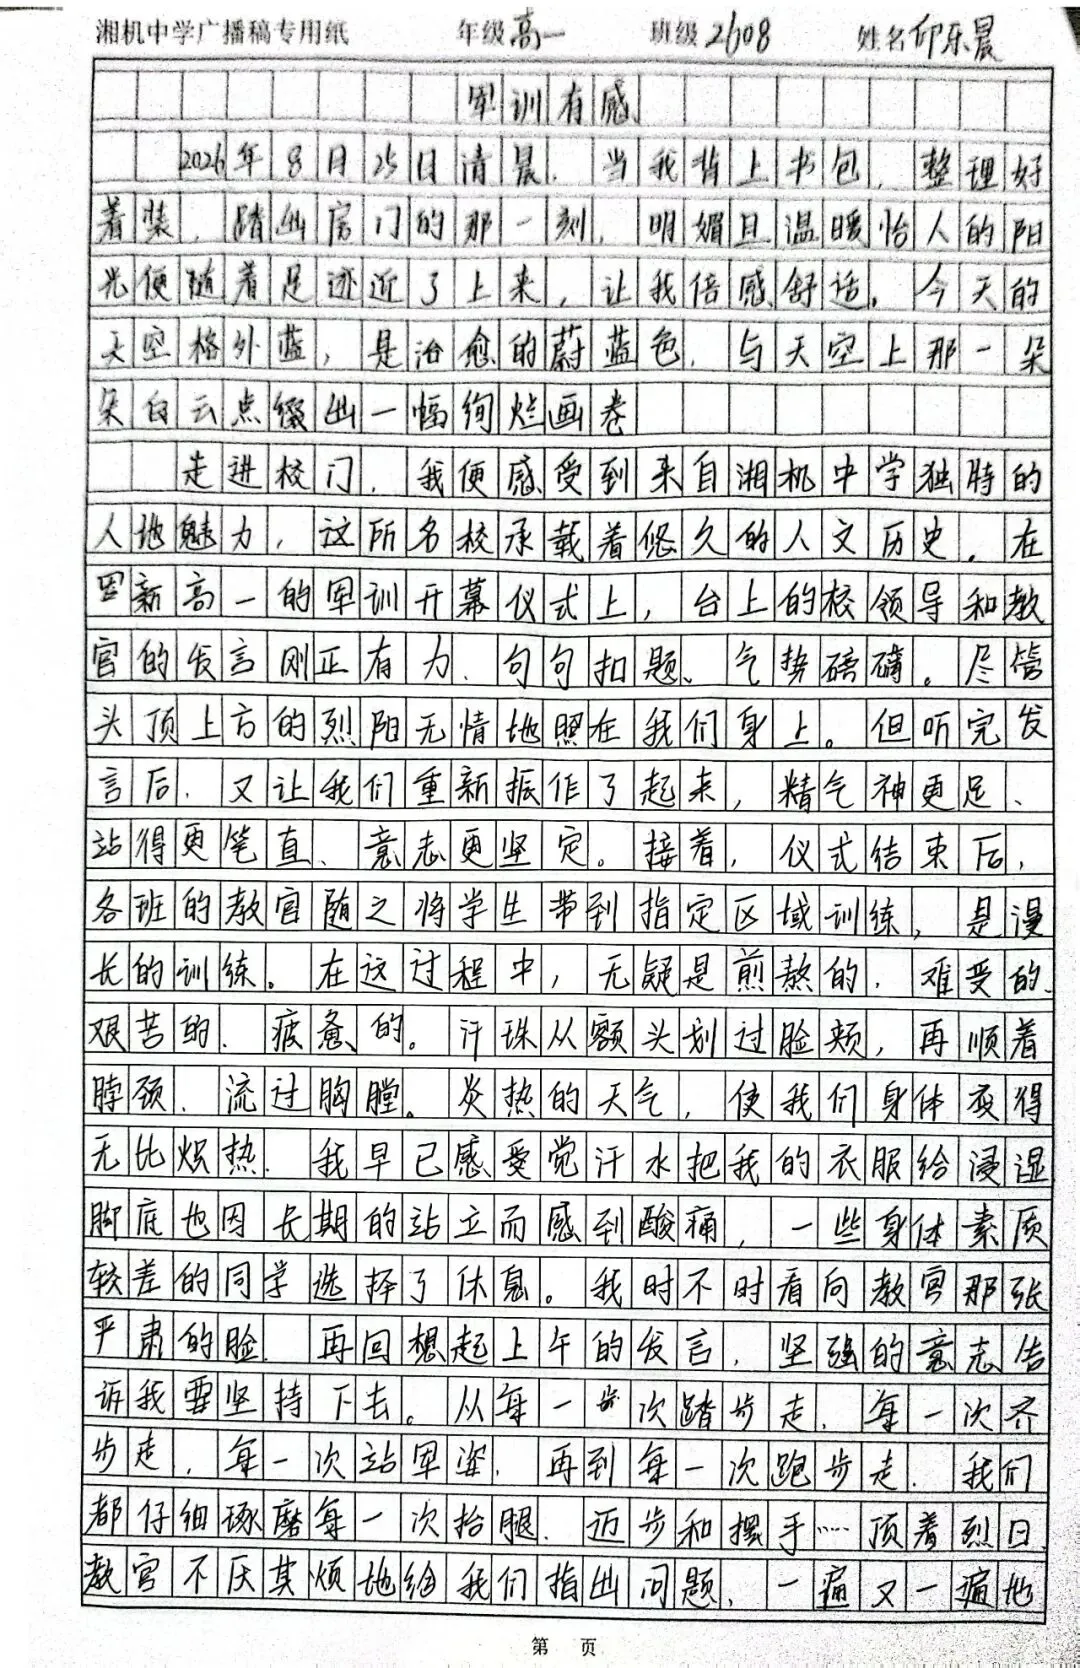 湘机中学广播稿专用纸 年级高一 班级2608 姓名邱乐晨
军训有感
2026年8月25日清晨，当我背上书包，整理好
着装，踏出房门的那一刻，明媚且温暖怡人的阳
光便随着足迹近了上来，让我倍感舒适。今天的
天空格外蓝，是治愈的蔚蓝色，与天空上那一朵
朵白云点缀出一幅绚烂画卷
走进校门，我便感受到来自湘机中学独特的
人地魅力，这所名校承载着悠久的人文历史。在
新高一的军训开幕仪式上，台上的校领导和教
官的发言刚正有力、句句扣题、气势磅礴。尽管
头顶上方的烈阳无情地照在我们身上。但听完发
言后，又让我们重新振作了起来，精气神更足、
站得更笔直、意志更坚定。接着，仪式结束后，
各班的教官随之将学生带到指定区域训练，是漫
长的训练。在这过程中，无疑是煎熬的，难受的、
艰苦的、疲惫的。汗珠从额头划过脸颊，再顺着
脖颈、流过胸膛。炎热的天气，使我们身体变得
无比炽热，我早已感受觉汗水把我的衣服给浸湿
脚底也因长期的站立而感到酸痛，一些身体素质
较差的同学选择了休息。我时不时看向教官那张
严肃的脸，再回想起上午的发言，坚强的意志告
诉我要坚持下去。从每一步次踏步走，每一次齐
步走，每一次站军姿，再到每一次跑步走，我们
都仔细琢磨每一次抬腿、迈步和摆手……顶着烈日
教官不厌其烦地给我们指出问题，一遍又一遍地
第 页